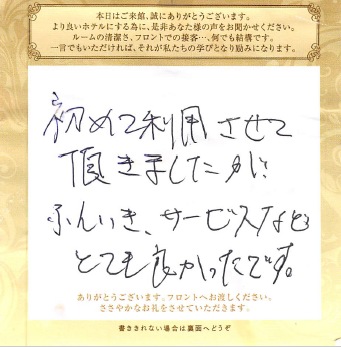 本日はご来館、誠にありがとうございます。
より良いホテルにする為に、是非あなた様の声をお聞かせください。
ルームの清潔さ、フロントでの接客…、何でも結構です。
一言でもいただければ、それが私たちの学びとなり励みになります。
初めて利用させて
頂きましたが、
ふんいき、サービスなども
とても良かったです。
ありがとうございます。フロントへお渡しください。
ささやかなお礼をさせていただきます。
書ききれない場合は裏面へどうぞ